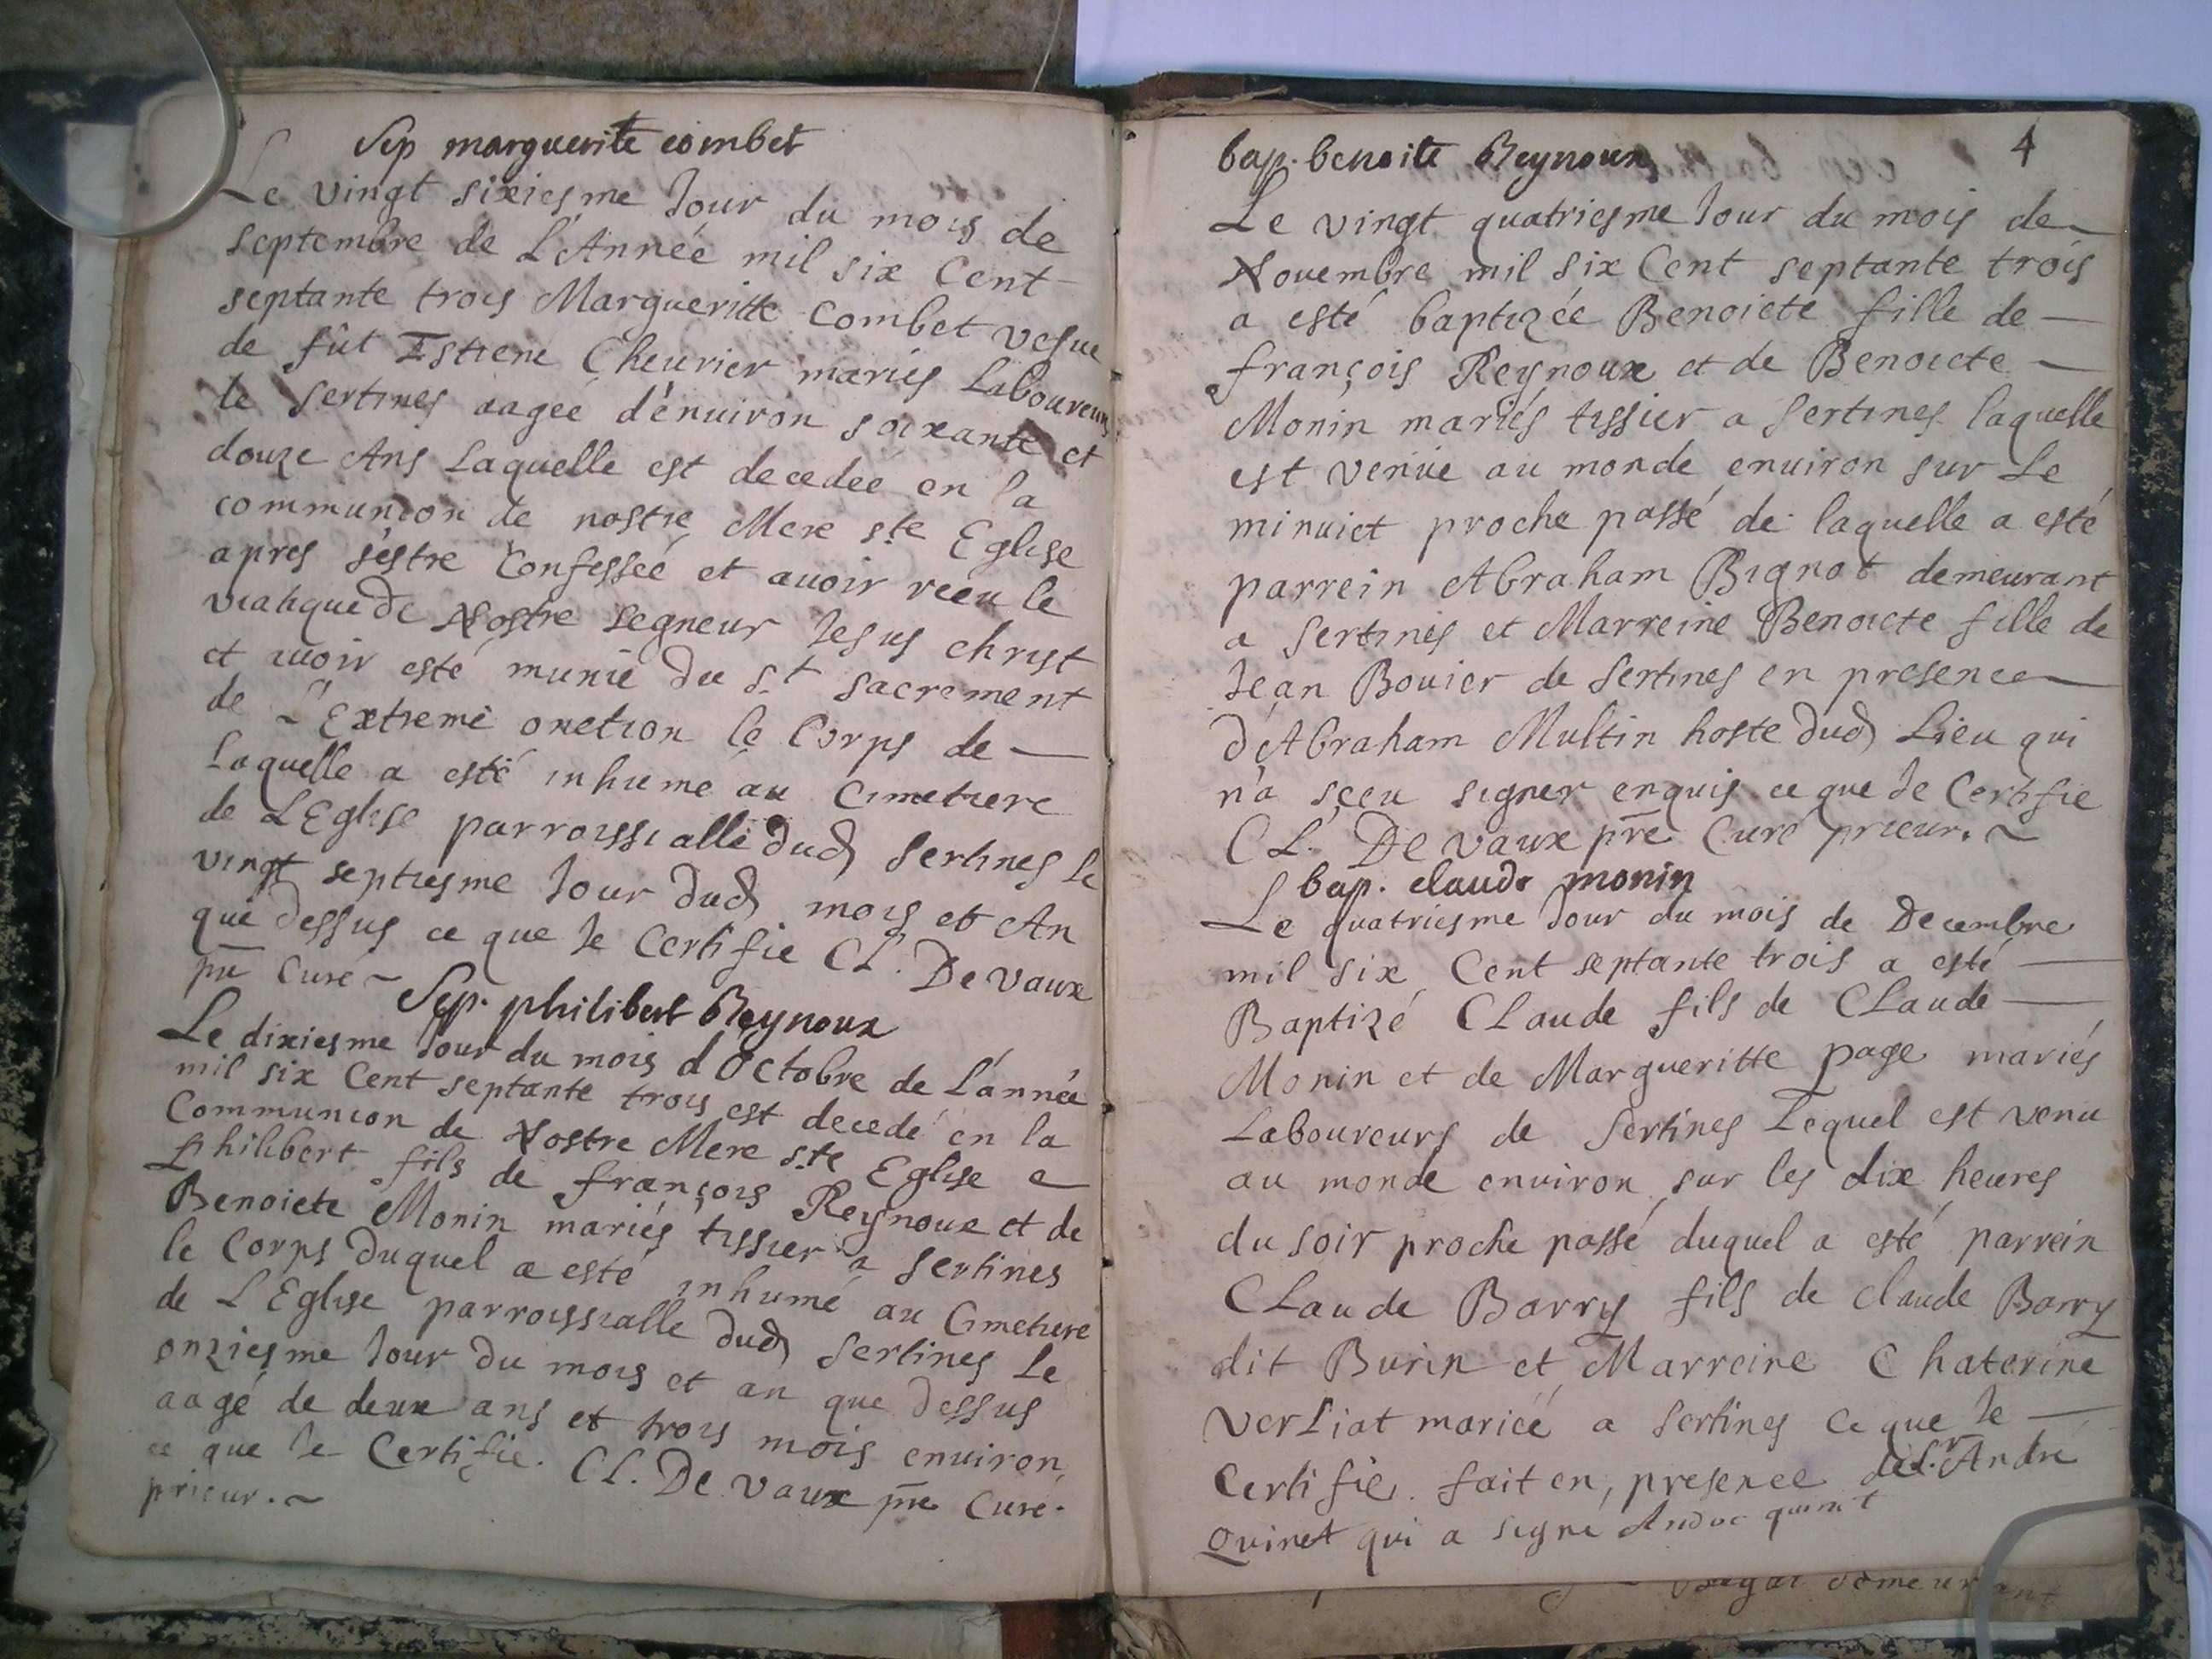 Sep marguerite combet
Le vingt sixiesme Jour du mois de
septembre de L'Année mil six Cent
septante trois Margueritte Combet vefue
de fût Estiene Cheurier mariés Laboureurs
de Sertines aagée d'enuiron soixante et
douze Ans Laquelle est decedée en la
communion de nostre Mere ste Eglise
apres s'estre Confessée et auoir receu le
viatique de Nostre segneur Jesus christ
et auoir esté munie du st sacrement
de L'Extreme onction le Corps de
laquelle a esté inhumé au Cimetiere
de L'Eglise parroissialle dud Sertines le
vingt septiesme Jour dud mois et An
que dessus ce que Je Certifie CL. De vaux
pre Curé
Sep. philibert Reynoux
Le dixiesme Jour du mois d'Octobre de L'année
mil six Cent septante trois est decedé en la
Communion de Nostre Mere ste Eglise
Philibert fils de françois Reynoux et de
Benoicte Monin mariés tissier a Sertines
le Corps duquel a esté inhumé au Cimetiere
de L'Eglise parroissialle dud Sertines Le
onziesme Jour du mois et an que dessus
aagé de deux ans et trois mois enuiron
ce que Je Certifie. CL. De vaux pre Curé.
prieur.
bap. benoite Reynoux 4
Le vingt quatriesme Jour du mois de
Nouembre mil six Cent septante trois
a esté baptizée Benoicte fille de
françois Reynoux et de Benoicte
Monin mariés tissier a Sertines laquelle
est venüe au monde enuiron sur Le
minuict proche passé de laquelle a esté
parrein Abraham Bignot demeurant
a Sertines et Marreine Benoicte fille de
Jean Bouier de Sertines en presence
d'Abraham Multin hoste dud Lieu qui
n'a sçeu signer enquis ce que Je Certifie
CL. De vaux pre Curé prieur.
bap. claude monin
Le quatriesme Jour du mois de Decembre
mil six Cent septante trois a esté
Baptizé CLaude fils de CLaude
Monin et de Margueritte page mariés
Laboureurs de Sertines Lequel est venu
au monde enuiron sur les dix heures
du soir proche passé duquel a esté parrein
CLaude Barry fils de claude Barry
dit Burin et Marreine Chaterine
verLiat mariée a Sertines Ce que Je
Certifie. fait en presence de Sr. André
Quinet qui a signé Andre quinet
demeurant